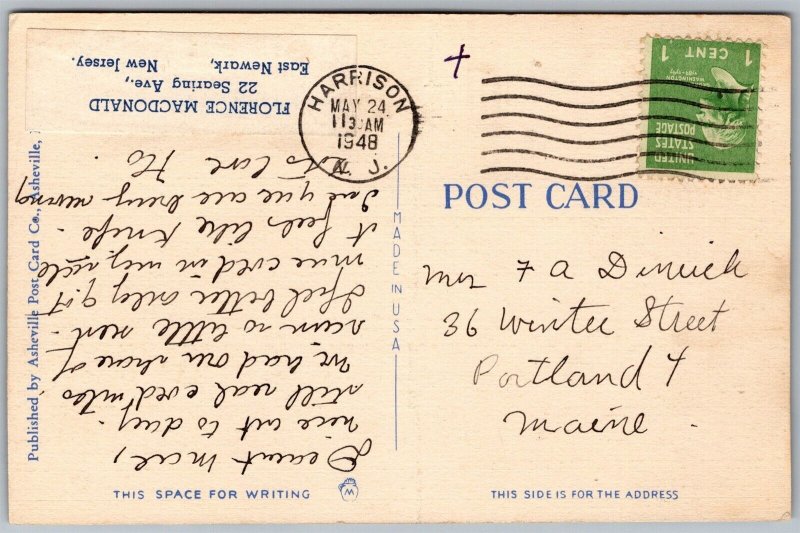 FLORENCE MACDONALD
22 Searing Ave.,
East Newark,
New Jersey.
HARRISON
MAY 24
11 30 AM
1948
N. J.
UNITED
STATES
POSTAGE
WASHINGTON
1789-1797
1 CENT 1
POST CARD
nice out to day.
still real cold nites
We had our share of
rain so little sun.
I feel better only got
more cold in my neck
it feels like Knife.
and you are busy
Love Flo
Mrs F A
36 Winter Street
Portland 4
Maine.
MADE IN USA
Published by Asheville Post Card Co., Asheville,
THIS SPACE FOR WRITING
THIS SIDE IS FOR THE ADDRESS